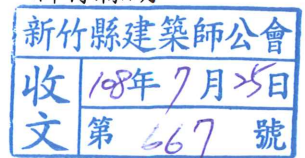 新竹縣建築師公會
收文
108年7月25日
第667號